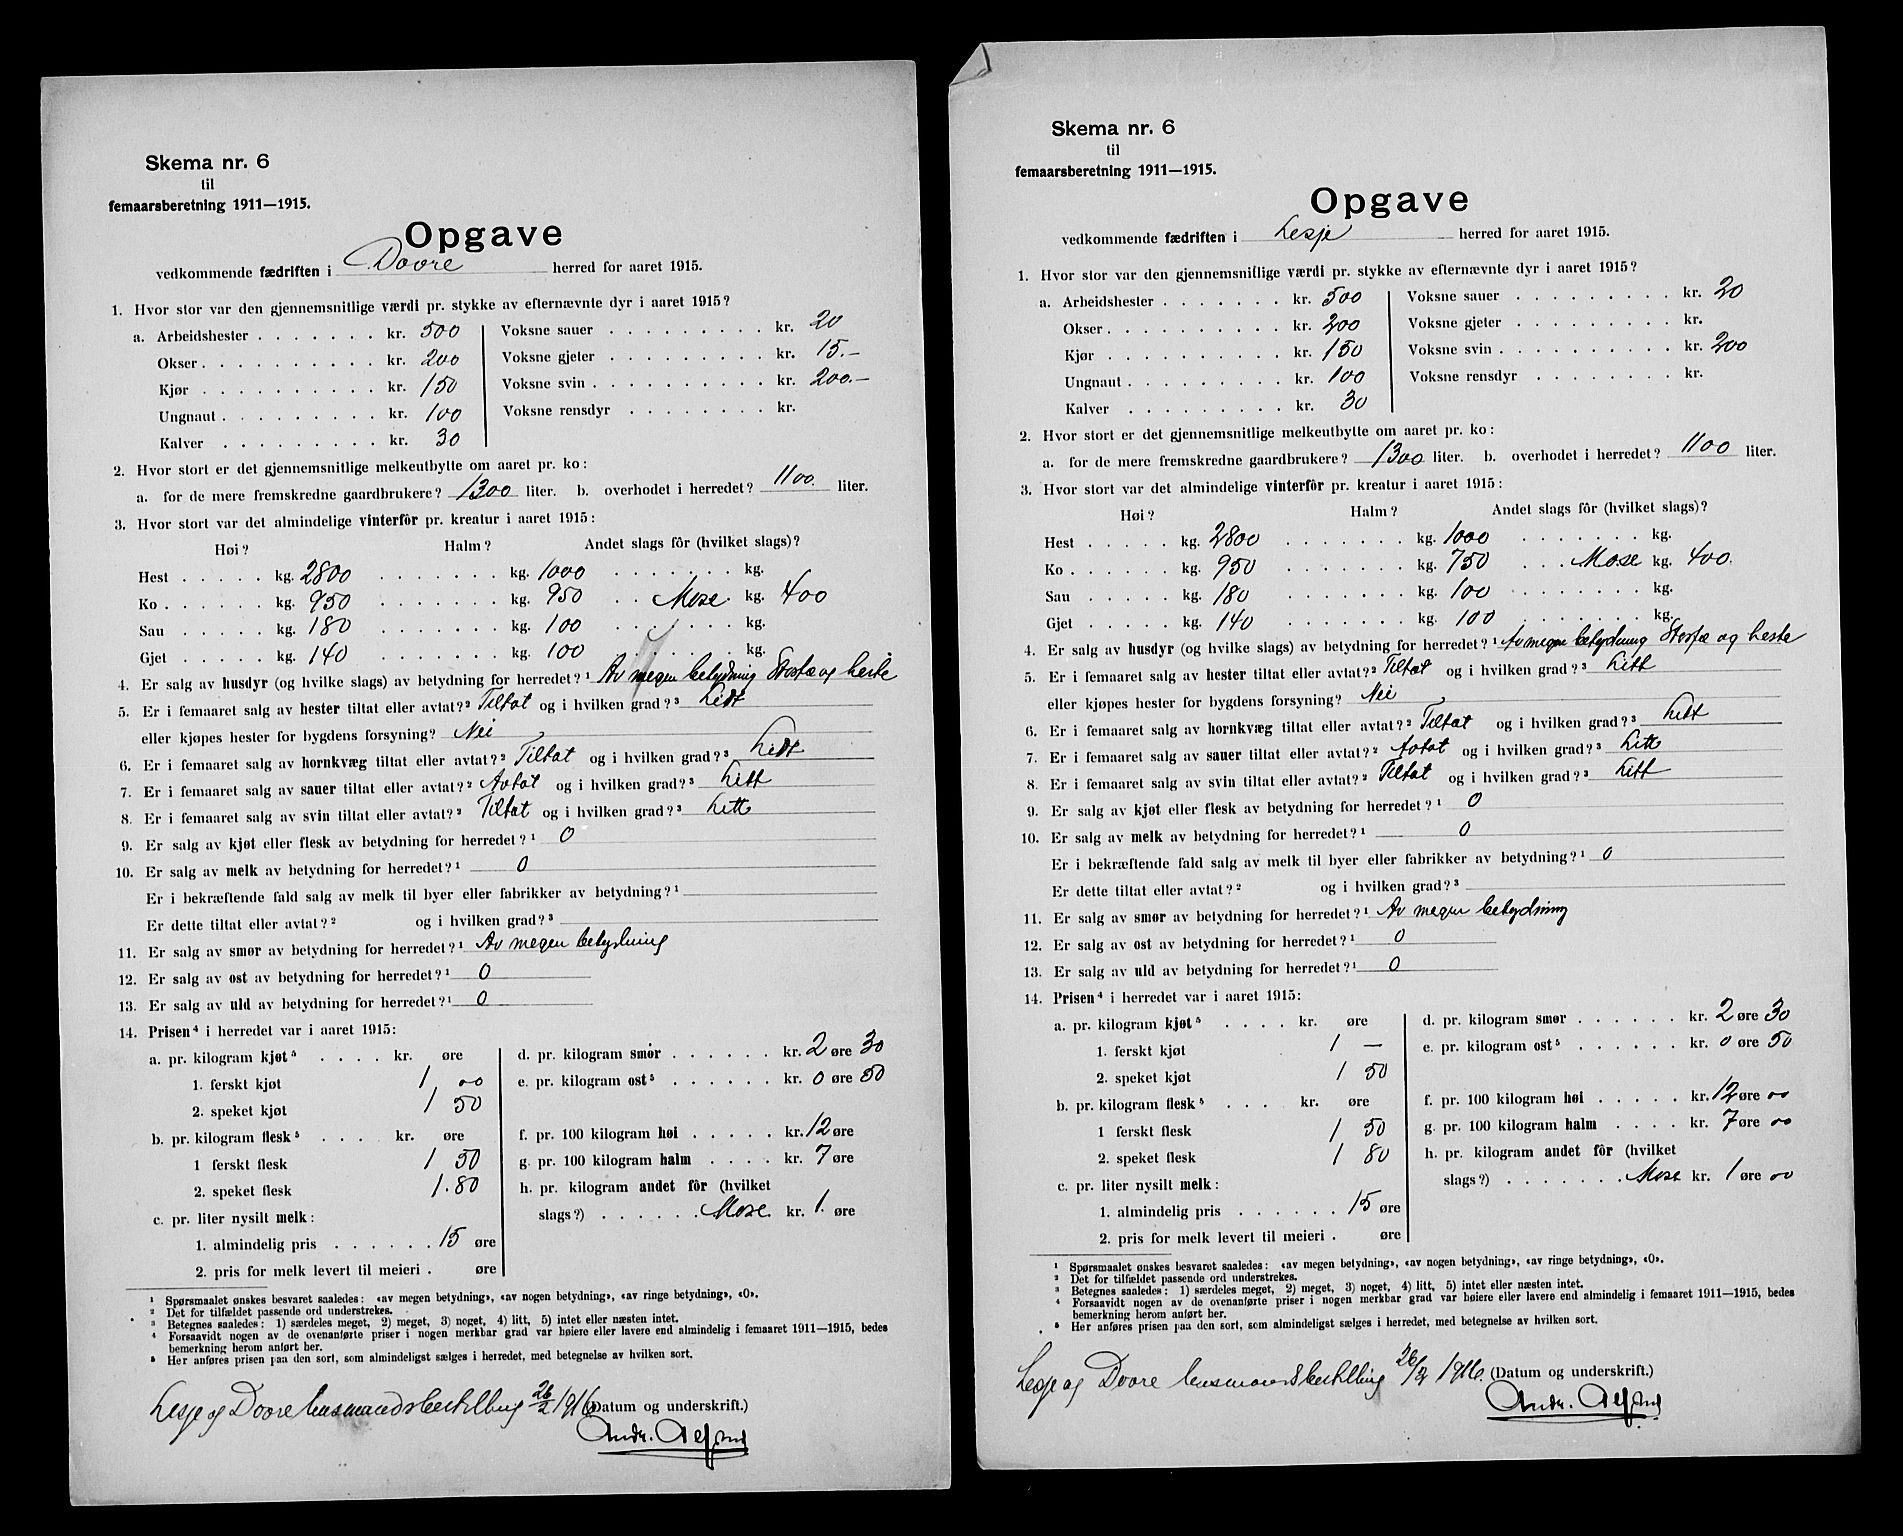 Skema nr. 6
til
femaarsberetning 1911—1915.
Opgave
vedkommende fædriften i Dovre herred for aaret 1915.
1. Hvor stor var den gjennemsnitlige værdi pr. stykke av efternævnte dyr i aaret 1915?
a. Arbeidshester . . . . . . . kr. 500 Voksne sauer . . . . . . . . . kr. 20
Okser . . . . . . . . . . kr. 200 Voksne gjeter . . . . . . . . . kr. 15.—
Kjør . . . . . . . . . . kr. 150 Voksne svin . . . . . . . . . . kr. 200.—
Ungnaut . . . . . . . . . kr. 100 Voksne rensdyr . . . . . . . . kr.
Kalver . . . . . . . . . kr. 30
2. Hvor stort er det gjennemsnitlige melkeutbytte om aaret pr. ko:
a. for de mere fremskredne gaardbrukere? 1300 liter. b. overhodet i herredet? 1100. liter.
3. Hvor stort var det almindelige vinterfôr pr. kreatur i aaret 1915:
Høi? Halm? Andet slags fôr (hvilket slags)?
Hest . . . . . kg. 2800 . . . . . . . kg. 1000 . . . . . . . kg.
Ko . . . . . . kg. 950 . . . . . . . kg. 950 . . Mose kg. 400
Sau . . . . . kg. 180 . . . . . . . kg. 100 . . . . . . . kg.
Gjet . . . . . kg. 140 . . . . . . . kg. 100 . . . . . . . kg.
4. Er salg av husdyr (og hvilke slags) av betydning for herredet?¹ Av megen betydning Storfæ og heste
5. Er i femaaret salg av hester tiltat eller avtat?² Tiltat og i hvilken grad?³ Lidt
eller kjøpes hester for bygdens forsyning? Nei
6. Er i femaaret salg av hornkvæg tiltat eller avtat?² Tiltat og i hvilken grad?³ Lidt
7. Er i femaaret salg av sauer tiltat eller avtat?² Avtat og i hvilken grad?³ Litt
8. Er i femaaret salg av svin tiltat eller avtat?² Tiltat og i hvilken grad?³ Litt
9. Er salg av kjøt eller flesk av betydning for herredet?¹ 0
10. Er salg av melk av betydning for herredet?¹ 0
Er i bekræftende fald salg av melk til byer eller fabrikker av betydning?¹
Er dette tiltat eller avtat?² og i hvilken grad?³
11. Er salg av smør av betydning for herredet?¹ Av megen betydning
12. Er salg av ost av betydning for herredet?¹ 0
13. Er salg av uld av betydning for herredet?¹ 0
14. Prisen⁴ i herredet var i aaret 1915:
a. pr. kilogram kjøt⁵ . . . . kr. øre d. pr. kilogram smør . . . . . . kr. 2 øre 30
1. ferskt kjøt 1, 00 e. pr. kilogram ost⁵ . . . . . . kr. 0 øre 50
2. speket kjøt 1 50
b. pr. kilogram flesk⁵ . . . . kr. øre f. pr. 100 kilogram høi . . . . . kr. 12 øre
1 ferskt flesk 1 50 g. pr. 100 kilogram halm . . . . kr. 7 øre
2. speket flesk 1.80 h. pr. kilogram andet fôr (hvilket
c. pr. liter nysilt melk: slags?) . . . . . . Mose. kr. 1. øre
1. almindelig pris . . . . . . 15 øre
2. pris for melk levert til meieri . øre
¹ Spørsmaalet ønskes besvaret saaledes: «av megen betydning», «av nogen betydning», «av ringe betydning», «0».
² Det for tilfældet passende ord understrekes.
³ Betegnes saaledes: 1) særdeles meget, 2) meget, 3) noget, 4) litt, 5) intet eller næsten intet.
⁴ Forsaavidt nogen av de ovenanførte priser i nogen merkbar grad var høiere eller lavere end almindelig i femaaret 1911—1915, bedes
bemerkning herom anført her.
⁵ Her anføres prisen paa den sort, som almindeligst sælges i herredet, med betegnelse av hvilken sort.
Lesje og Dovre lensmandsbestilling 26/2 1916 (Datum og underskrift.)
Andr.
Skema nr. 6
til
femaarsberetning 1911—1915.
Opgave
vedkommende fædriften i Lesje herred for aaret 1915.
1. Hvor stor var den gjennemsnitlige værdi pr. stykke av efternævnte dyr i aaret 1915?
a. Arbeidshester . . . . . . . kr. 500 Voksne sauer . . . . . . . . . kr. 20
Okser . . . . . . . . . . kr. 200 Voksne gjeter . . . . . . . . . kr.
Kjør . . . . . . . . . . kr. 150 Voksne svin . . . . . . . . . . kr. 200
Ungnaut . . . . . . . . . kr. 100 Voksne rensdyr . . . . . . . . kr.
Kalver . . . . . . . . . kr. 30
2. Hvor stort er det gjennemsnitlige melkeutbytte om aaret pr. ko:
a. for de mere fremskredne gaardbrukere? 1300 liter. b. overhodet i herredet? 1100 liter.
3. Hvor stort var det almindelige vinterfôr pr. kreatur i aaret 1915:
Høi? Halm? Andet slags fôr (hvilket slags)?
Hest . . . . . kg. 2800 . . . . . . . kg. 1000 . . . . . . . kg.
Ko . . . . . . kg. 950 . . . . . . . kg. 750 . . . Mose kg. 400.
Sau . . . . . kg. 180 . . . . . . . kg. 100 . . . . . . . kg.
Gjet . . . . . kg. 140 . . . . . . . kg. 100 . . . . . . . kg.
4. Er salg av husdyr (og hvilke slags) av betydning for herredet?¹ Av megen betydning Storfæ og heste
5. Er i femaaret salg av hester tiltat eller avtat?² Tiltat og i hvilken grad?³ Litt
eller kjøpes hester for bygdens forsyning? Nei
6. Er i femaaret salg av hornkvæg tiltat eller avtat?² Tiltat og i hvilken grad?³ Litt
7. Er i femaaret salg av sauer tiltat eller avtat?² Avtat og i hvilken grad?³ Litt
8. Er i femaaret salg av svin tiltat eller avtat?² Tiltat og i hvilken grad?³ Litt
9. Er salg av kjøt eller flesk av betydning for herredet?¹ 0
10. Er salg av melk av betydning for herredet?¹ 0
Er i bekræftende fald salg av melk til byer eller fabrikker av betydning?¹ 0
Er dette tiltat eller avtat?² og i hvilken grad?³
11. Er salg av smør av betydning for herredet?¹ Av megen betydning
12. Er salg av ost av betydning for herredet?¹ 0
13. Er salg av uld av betydning for herredet?¹ 0
14. Prisen⁴ i herredet var i aaret 1915:
a. pr. kilogram kjøt⁵ . . . . kr. øre d. pr. kilogram smør . . . . . . kr. 2 øre 30
1. ferskt kjøt 1 — e. pr. kilogram ost⁵ . . . . . . kr. 0 øre 50
2. speket kjøt 1 50
b. pr. kilogram flesk⁵ . . . . kr. øre f. pr. 100 kilogram høi . . . . . kr. 12 øre 00
1 ferskt flesk 1 50 g. pr. 100 kilogram halm . . . . kr. 7 øre 00
2. speket flesk 1 80 h. pr. kilogram andet fôr (hvilket
c. pr. liter nysilt melk: slags?) . . . . . . . Mose kr. 1 øre 00
1. almindelig pris . . . . . . 15 øre
2. pris for melk levert til meieri . øre
¹ Spørsmaalet ønskes besvaret saaledes: «av megen betydning», «av nogen betydning», «av ringe betydning», «0».
² Det for tilfældet passende ord understrekes.
³ Betegnes saaledes: 1) særdeles meget, 2) meget, 3) noget, 4) litt, 5) intet eller næsten intet.
⁴ Forsaavidt nogen av de ovenanførte priser i nogen merkbar grad var høiere eller lavere end almindelig i femaaret 1911—1915, bedes
bemerkning herom anført her.
⁵ Her anføres prisen paa den sort, som almindeligst sælges i herredet, med betegnelse av hvilken sort.
Lesje og Dovre lensmandsbestilling 26/2 1916. (Datum og underskrift.)
Andr.